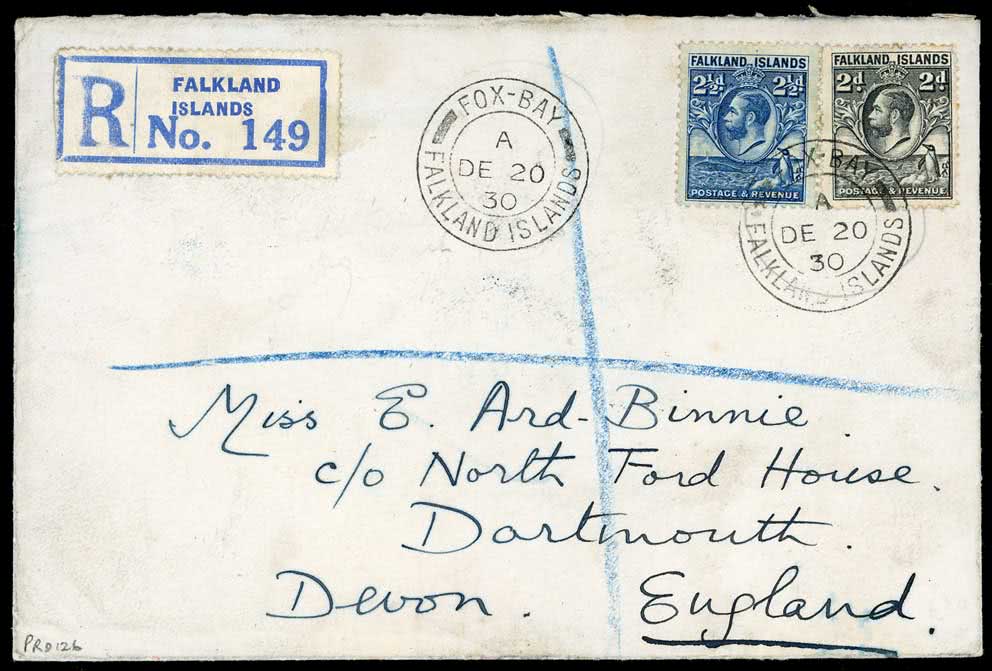 R
FALKLAND
ISLANDS
No. 149
FOX-BAY
A
DE 20
30
FALKLAND ISLANDS
FALKLAND ISLANDS
2½d. 2½d.
POSTAGE & REVENUE
FALKLAND ISLANDS
2d. 2d.
POSTAGE & REVENUE
FOX-BAY
A
DE 20
30
FALKLAND ISLANDS
Miss E. Ard-Binnie.
c/o North Ford House.
Dartmouth.
Devon. England.
PRD126